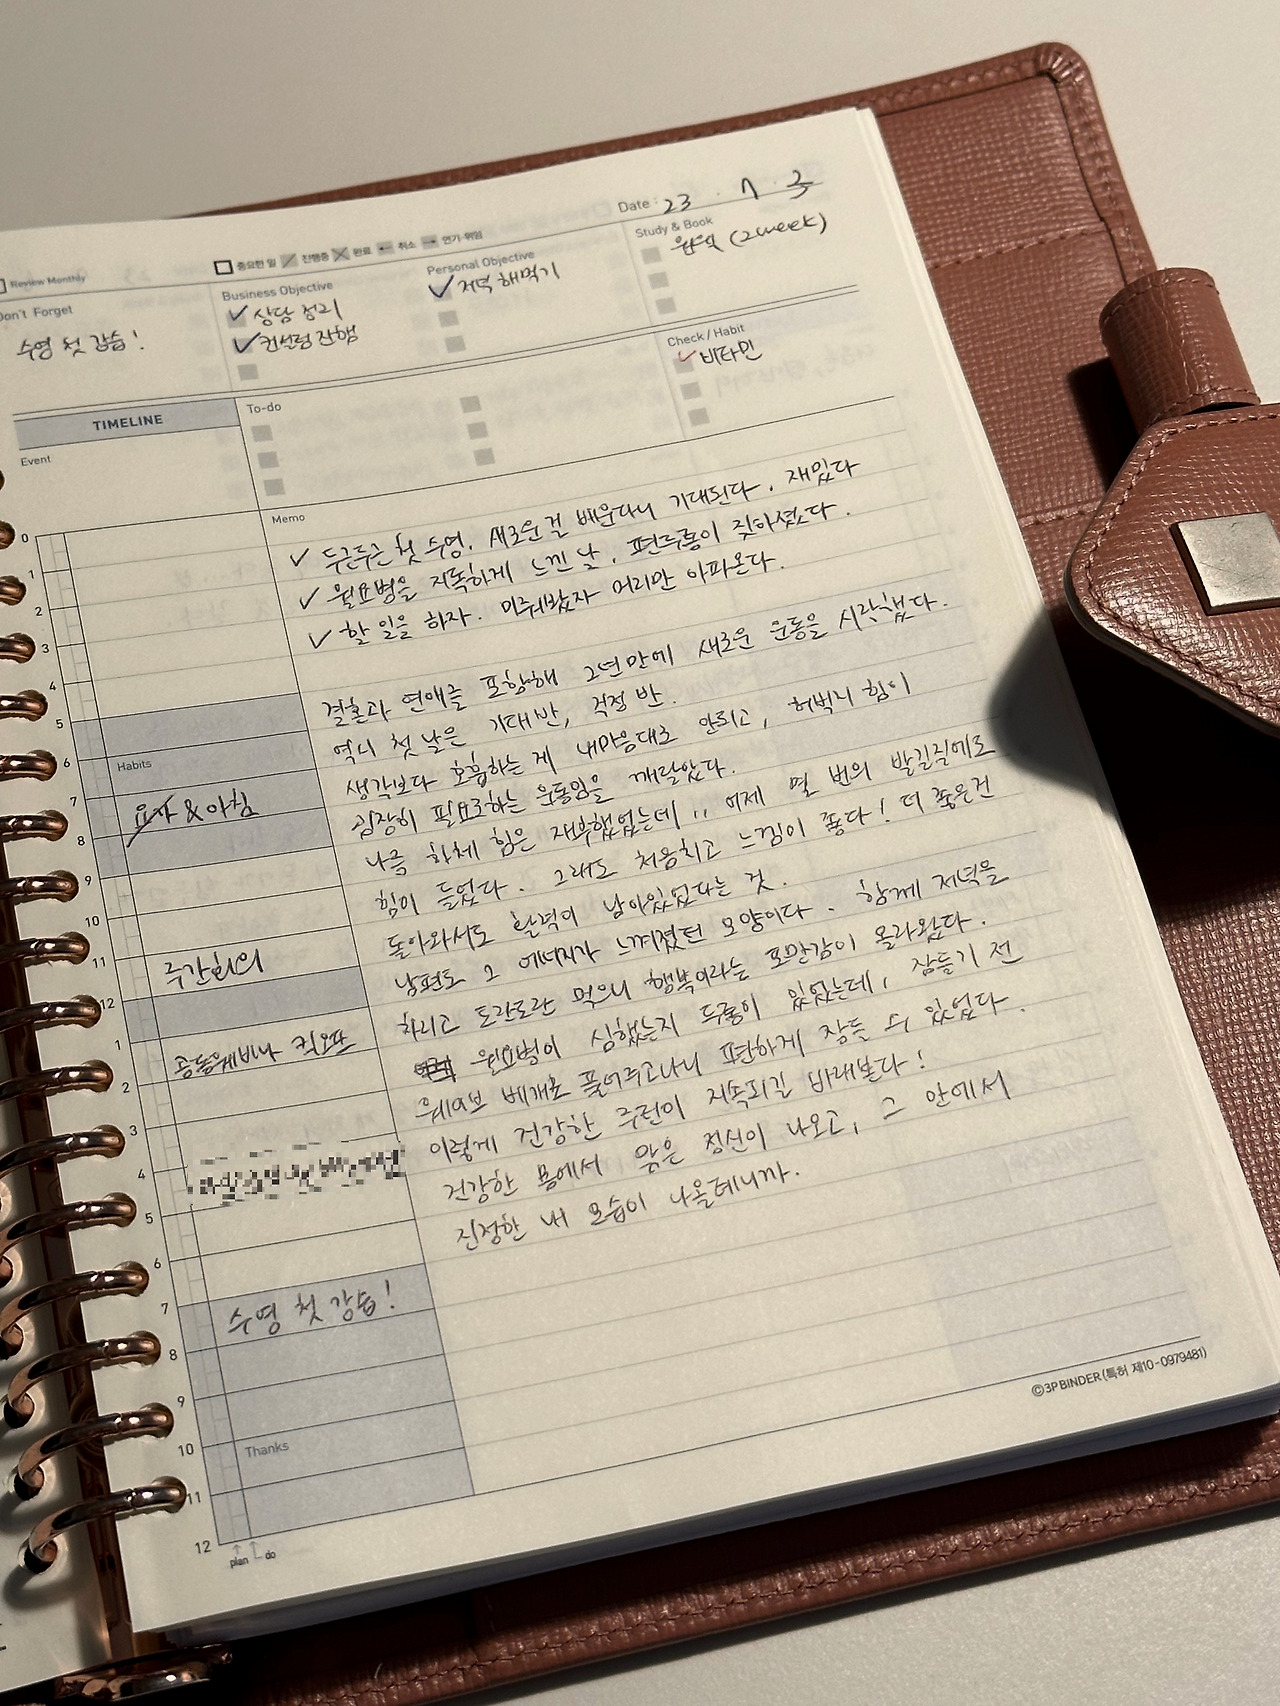 Date : 23 . 7 . 3
Review Monthly
중요한 일 진행중 완료 취소 연기·위임
Don't Forget
수영 첫 강습!
Business Objective
상담 정리
컨설팅 진행
Personal Objective
저녁 해먹기
Study & Book
(2week)
Check / Habit
비타민
TIMELINE
Event
To-do
Memo
두근두근 첫 수영. 새로운 걸 배운다니 기대된다. 재밌다
월요병을 지독하게 느낀 날. 편두통이 찾아왔다.
할 일을 하자. 미뤄봤자 머리만 아파온다.
결혼과 연애를 포함해 2년만에 새로운 운동을 시작했다.
역시 첫 날은 기대 반, 걱정 반.
생각보다 호흡하는 게 내마음대로 안되고, 허벅지 힘이
굉장히 필요로하는 운동임을 깨달았다.
나름 하체 힘은 자부했었는데.. 어제 열 번의 발길질에도
힘이 들었다. 그래도 처음치고 느낌이 좋다! 더 좋은건
돌아와서도 활력이 남아있었다는 것.
남편도 그 에너지가 느껴졌던 모양이다. 함께 저녁을
차리고 도란도란 먹으니 행복이라는 포만감이 올라왔다.
월요병이 심했는지 두통이 있었는데, 잠들기 전
웨이브 베개로 풀어주고나니 편하게 잠들 수 있었다.
이렇게 건강한 루틴이 지속되길 바래본다!
건강한 몸에서 맑은 정신이 나오고, 그 안에서
진정한 내 모습이 나올테니까.
0
1
2
3
4
5
6
Habits
7
요가 & 아침
8
9
10
11
주간회의
12
1
공동웨비나 킥오프
2
3
4
5
6
7
수영 첫 강습!
8
9
10
Thanks
11
12
plan do
©3PBINDER(특허 제10-0979481)